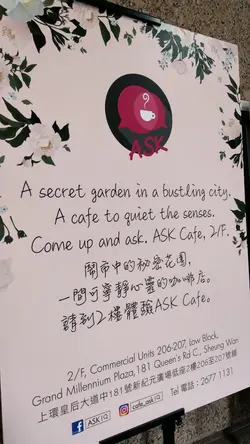 ASK
A secret garden in a bustling city.
A cafe to quiet the senses.
Come up and ask. ASK Cafe, 2/F.
鬧市中的秘密花園,
一間可寧靜心靈的咖啡店。
請到2樓體驗ASK Cafe。
2/F, Commercial Units 206-207, Low Block,
Grand Millennium Plaza, 181 Queen's Rd C., Sheung Wan
上環皇后大道中181號新紀元廣場低座2樓206至207號舖
Tel 電話: 2677 1131
f ASK IQ cafe_ask IQ